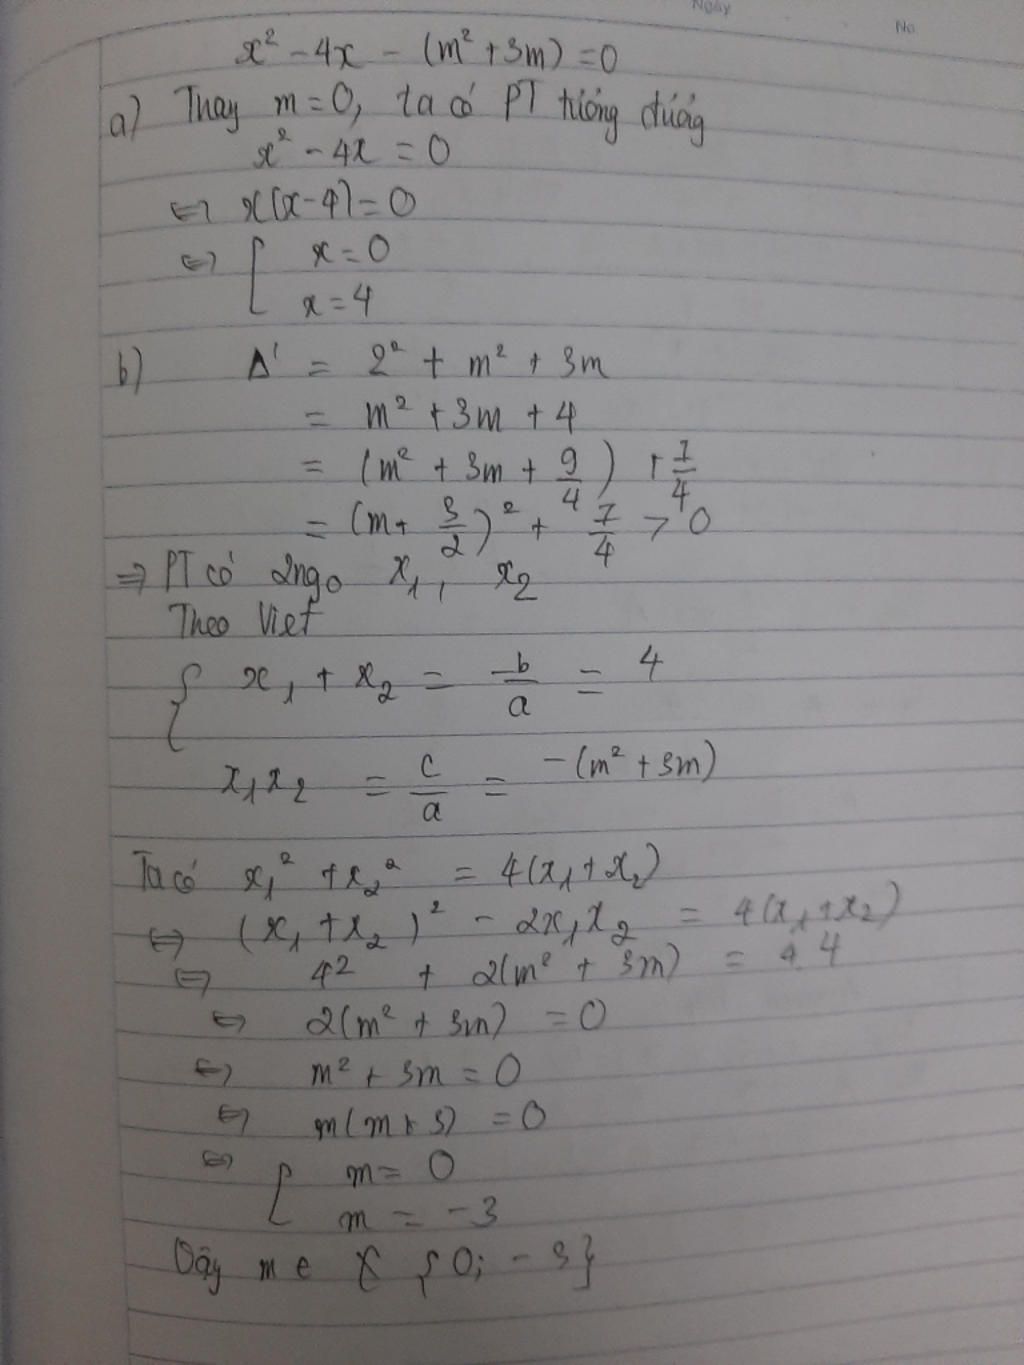 Ngày
No.
x² - 4x - (m² + 3m) = 0
a) Thay m = 0, ta có PT tương đương
x² - 4x = 0
⇔ x(x - 4) = 0
⇔ [ x = 0
x = 4
b) Δ' = 2² + m² + 3m
= m² + 3m + 4
= (m² + 3m + 9/4) + 7/4
= (m + 3/2)² + 7/4 > 0
⇒ PT có 2ngo x₁, x₂
Theo Viet
{ x₁ + x₂ = -b/a = 4
x₁x₂ = c/a = -(m² + 3m)
Ta có x₁² + x₂² = 4(x₁ + x₂)
⇔ (x₁ + x₂)² - 2x₁x₂ = 4(x₁ + x₂)
⇔ 4² + 2(m² + 3m) = 4.4
⇔ 2(m² + 3m) = 0
⇔ m² + 3m = 0
⇔ m(m + 3) = 0
⇔ [ m = 0
m = -3
Vậy m ∈ {0; -3}